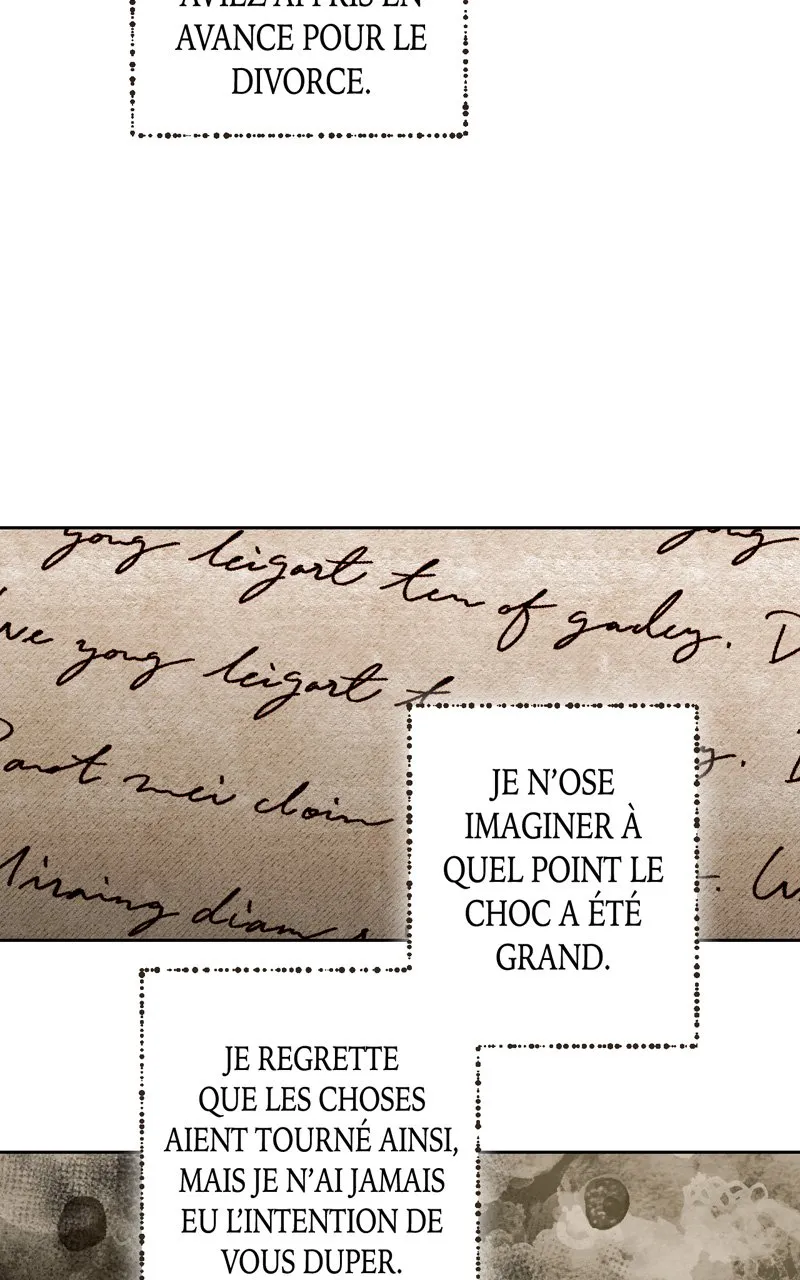 AVIEZ APPRIS EN
AVANCE POUR LE
DIVORCE.
yong leigart ten of gadey. D
ve yong leigart t
JE N'OSE
IMAGINER À
QUEL POINT LE
CHOC A ÉTÉ
GRAND.
JE REGRETTE
QUE LES CHOSES
AIENT TOURNÉ AINSI,
MAIS JE N'AI JAMAIS
EU L'INTENTION DE
VOUS DUPER.